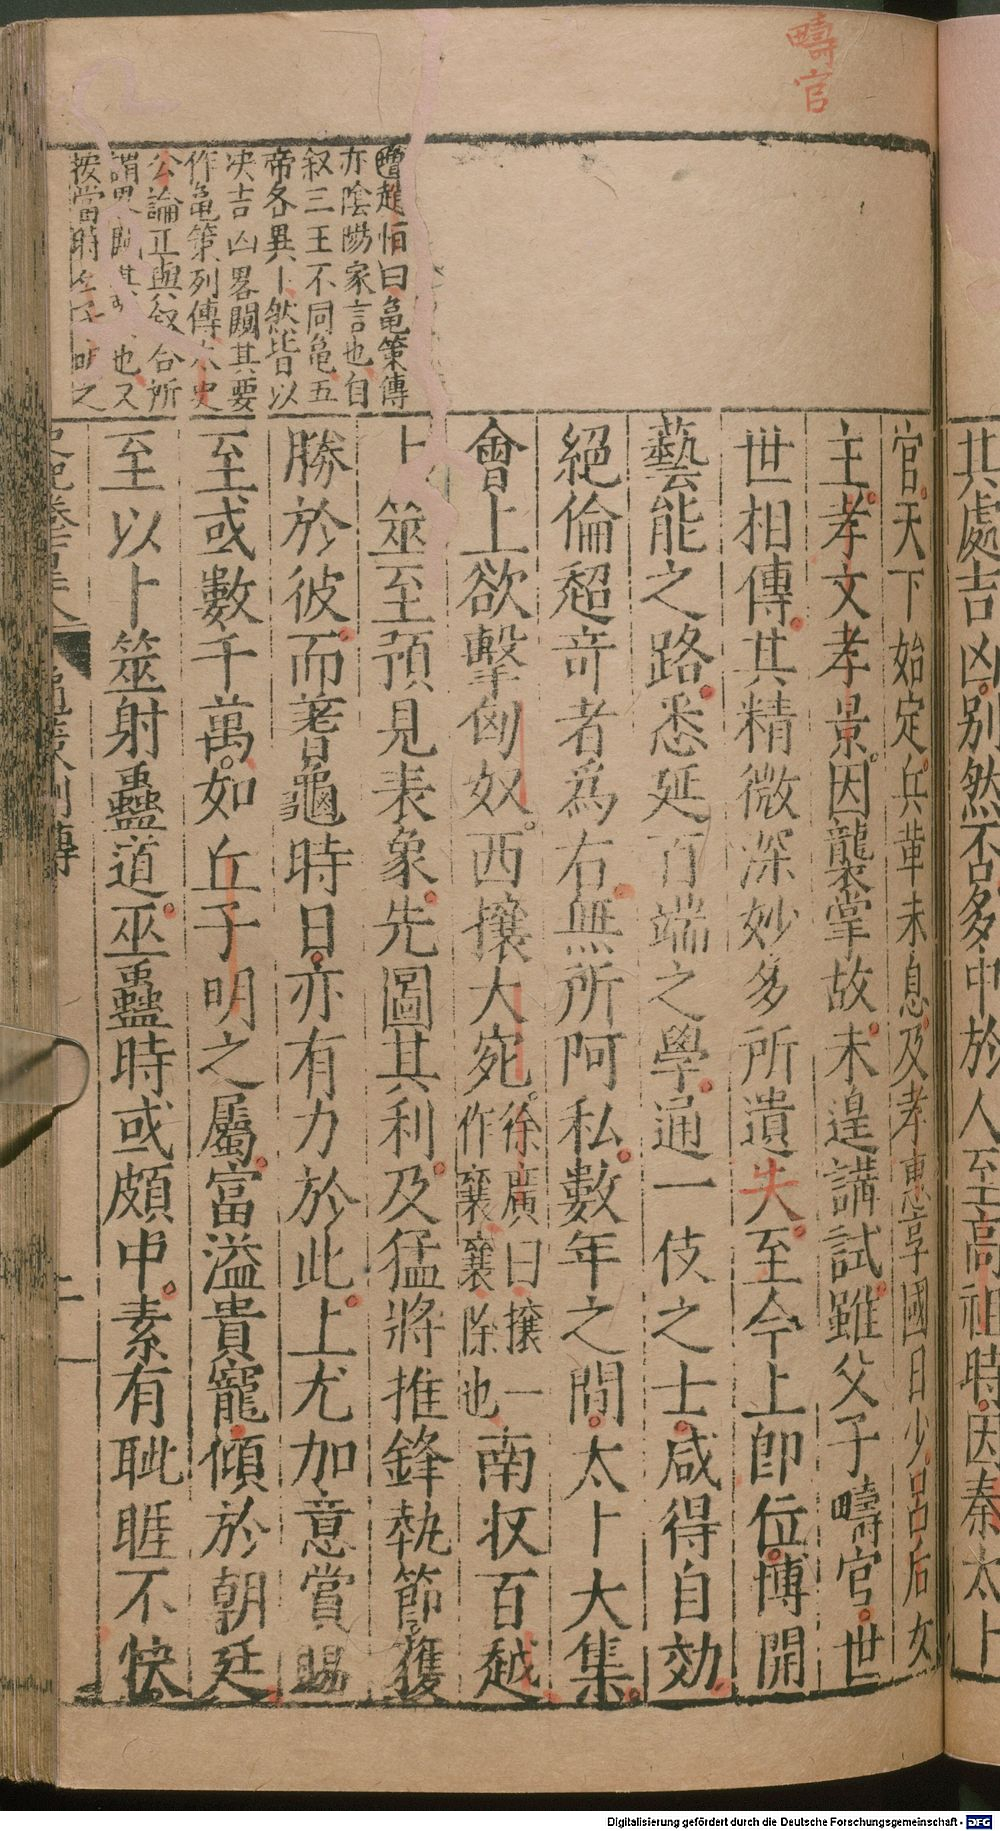 疇官
共處吉凶別然不多中於人至高祖時因秦太卜
官天下始定兵革未息及孝惠享國日少呂后女
主孝文孝景因襲掌故未遑講試雖父子疇官世
世相傳其精微深妙多所遺失至今上卽位博開
藝能之路悉延百端之學通一伎之士咸得自効
絕倫超奇者爲右無所阿私數年之閒太卜大集
會上欲擊匈奴西攘大宛徐廣曰攘一作襄襄除也南收百越
卜筮至預見表象先圖其利及猛將推鋒執節獲
勝於彼而蓍龜時日亦有力於此上尤加意賞賜
至或數千萬如丘子明之屬富溢貴寵傾於朝廷
至以卜筮射蠱道巫蠱時或頗中素有眦睚不快
趙恒曰亀策傳
亦陰陽家言也自
叙三王不同亀五
帝各異卜然皆以
决吉凶畧闚其要
作亀策列傳太史
公論正與叙合所
謂畧闚其也又
按當時丘子明之
龜策列傳
Digitalisierung gefördert durch die Deutsche Forschungsgemeinschaft - DFG